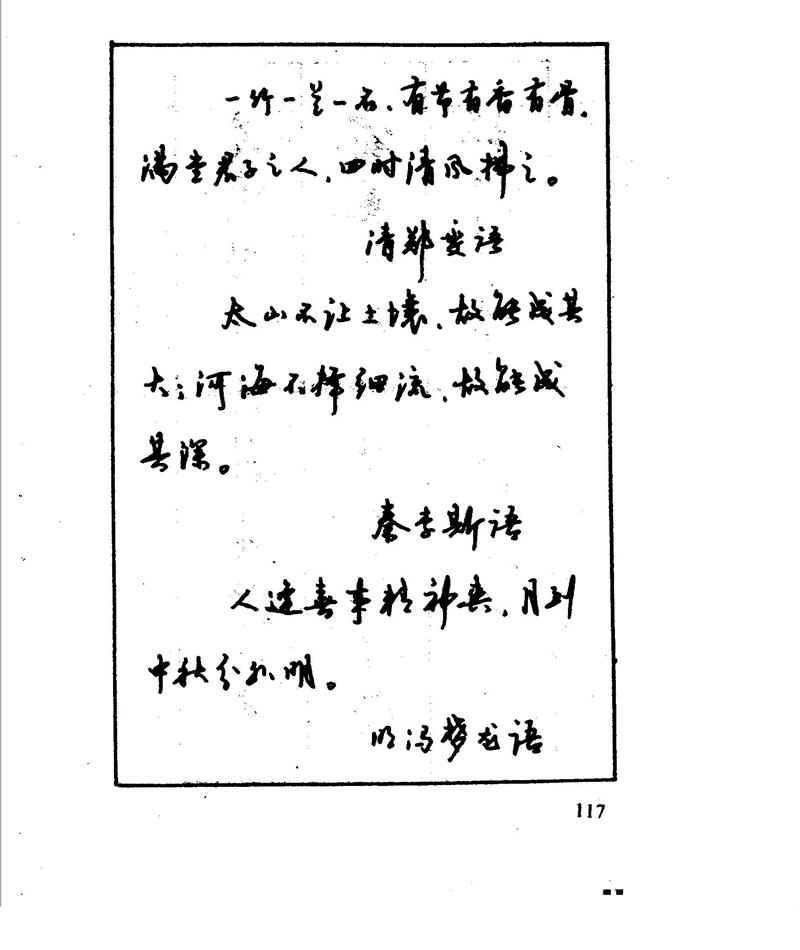 一竹一兰一石，有节有香有骨，
满堂君子之人，四时清风拂之。
清郑燮语
太山不让土壤，故能成其
大；河海不择细流，故能成
其深。
秦李斯语
人逢喜事精神爽，月到
中秋分外明。
明冯梦龙语
117